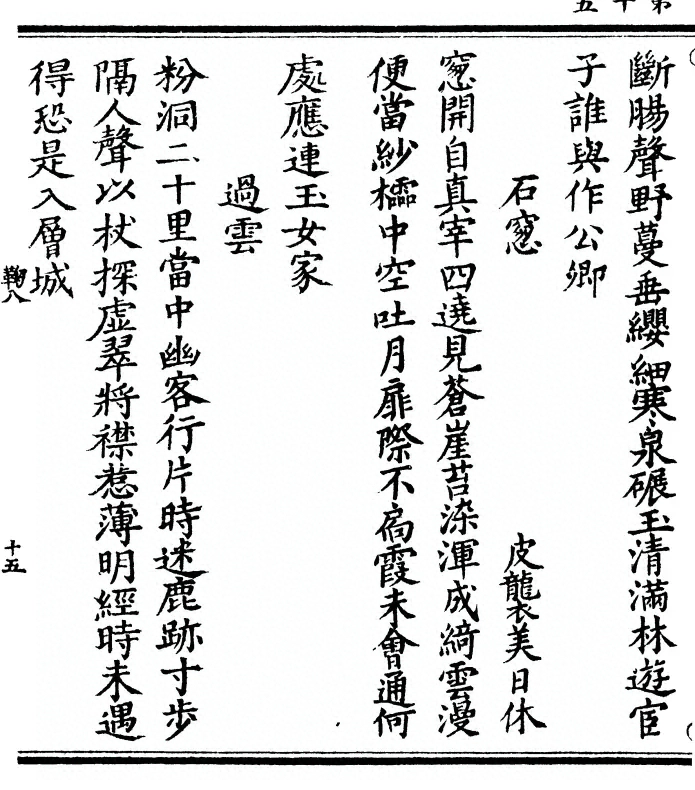 斷腸聲野蔓垂纓細寒泉碾玉清滿林遊宦
子誰與作公卿
石窓
皮襲美日休
窓開自真宰四遶見蒼崖苔染渾成綺雲漫
便當紗櫺中空吐月扉際不扄霞未會通何
處應連玉女家
過雲
粉洞二十里當中幽客行片時迷鹿跡寸步
隔人聲以杖探虛翠將襟惹薄明經時未遇
得恐是入層城
鞠八
十五